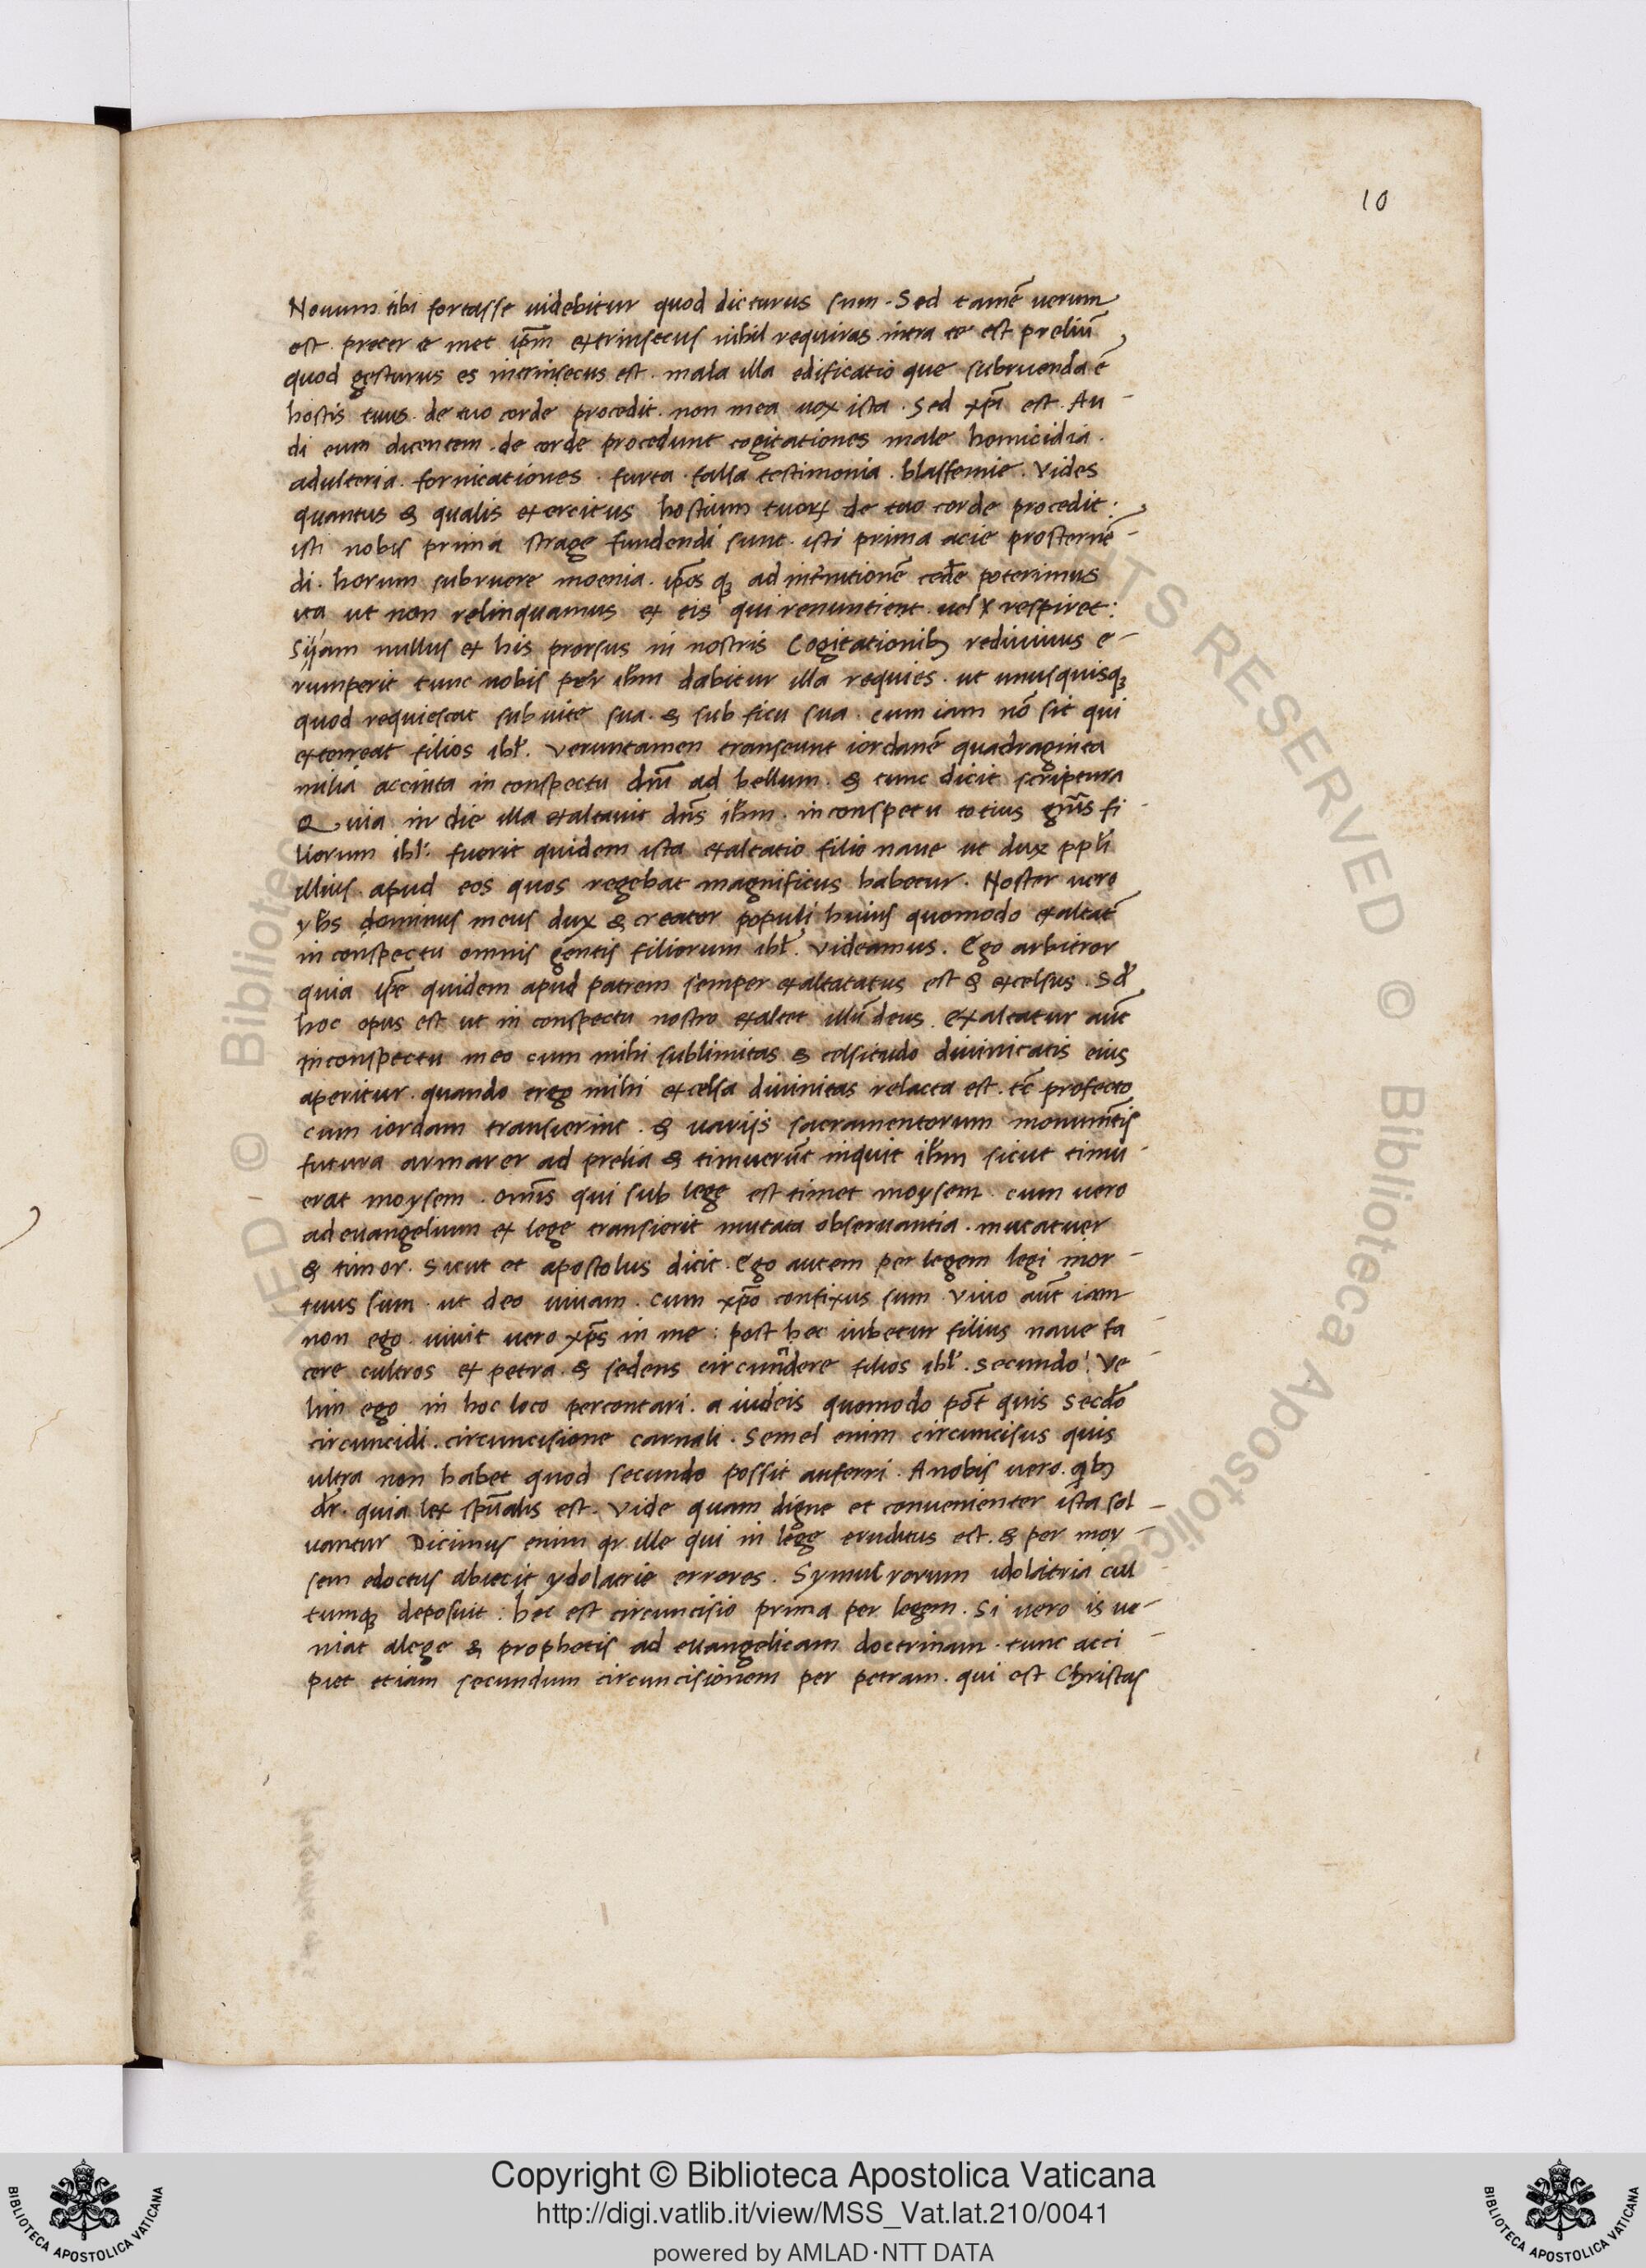 10
Novum tibi fortasse uidebitur quod dicturus sum. Sed tamē uerum
est. preter te met ipm̄ extrinsecus nihil requiras intra te est preliū
quod gesturus es intrinsecus est. mala illa edificatio que subruenda ē
hostis tuus de tuo corde procedit. non mea uox ista. Sed xp̄i est. Au-
di eum dicentem. de corde procedunt cogitationes male homicidia.
adulteria. fornicationes. furta. falsa testimonia. blasfemie. Vides
quantus & qualis exercitus hostium tuoꝝ de tuo corde procedit:
isti nobis prima strage fundendi sunt. isti prima acie prosternē-
di. horum subruere moenia. ip̄os qꝫ ad poterimus
ita ut non relinquamus ex eis qui renuntient. uel respiret:
Si iam nullus ex his prorsus in nostris Cogitationibꝫ rediuiuus e-
rumperit tunc nobis per ih̄m dabitur illa requies. ut unusquisqꝫ
quod requiescat sub uite sua. & sub ficu sua. cum iam nō sit qui
exterreat filios ihl̄. Veruntamen transeunt iordanē quadraginta
milia accinta in conspectu dn̄i ad bellum. & tunc dicit scriptura
Quia in die illa exaltauit dn̄s ih̄m. in conspetu totius gn̄is fi-
liorum ihl̄. fuerit quidem ista exaltatio filio naue ut dux ppl̄i
illius. apud eos quos regebat magnificus habetur. Noster uero
yh̄s dominus meus dux & creator populi huius quomodo exaltat᷑
in conspectu omnis gentis filiorum ihl̄. Videamus. Ego arbitror
quia ip̄e quidem apud patrem semper exaltatatus est & excelsus. Sd̄
hoc opus est ut in conspectu nostro exaltet illū deus. Exaltatur aūt
in conspectu meo cum mihi sublimitas & celsitudo diuinitatis eius
aperitur. quando ergo mihi excelsa diuinitas relacta est. tc̄ profecto
cum iordam transierint. & uarijs sacramentorum monumēntis
futura armarer ad prelia & timuerūt inquit ih̄m sicut timu-
erat moysem. omīs qui sub lege est timet moysem. cum uero
ad euangelium ex lege transierit mutata obseruantia. mutatuer
& timor. Sicut et apostolus dicit. Ego autem per legem legi mor-
tuus sum. ut deo uiuam. Cum xp̄o confixus sum. Viuo aūt iam
non ego. uiuit uero xp̄s in me: post hec iubetur filius naue fa-
cere cultros ex petra. & sedens circundere filios ihl̄. secundo. Ve-
lim ego in hoc loco percontari. a iudeis quomodo pōt quis secdō
circuncidi. circuncisione carnali. Semel enim circuncisus quis
ultra non habet quod secundo possit auferri. A nobis uero. qibꝫ
dr̄. quia lex spūalis est. Vide quam digne et conuenienter ista sol-
uantur Dicimus enim qr ille qui in lege eruditus est. & per moy-
sem edoctus abiecit ydolatrie errores. Symulrorum idolatria cul-
tumqꝫ deposuit: hec est circuncisio prima per legem. Si uero is ue-
niat alege & prophetis ad euangelicam doctrinam. tunc acci-
piet etiam secundum circuncisionem per petram. qui est Christus
Copyright © Biblioteca Apostolica Vaticana
http://digi.vatlib.it/view/MSS_Vat.lat.210/0041
powered by AMLAD·NTT DATA
BIBLIOTECA APOSTOLICA VATICANA
BIBLIOTECA APOSTOLICA VATICANA